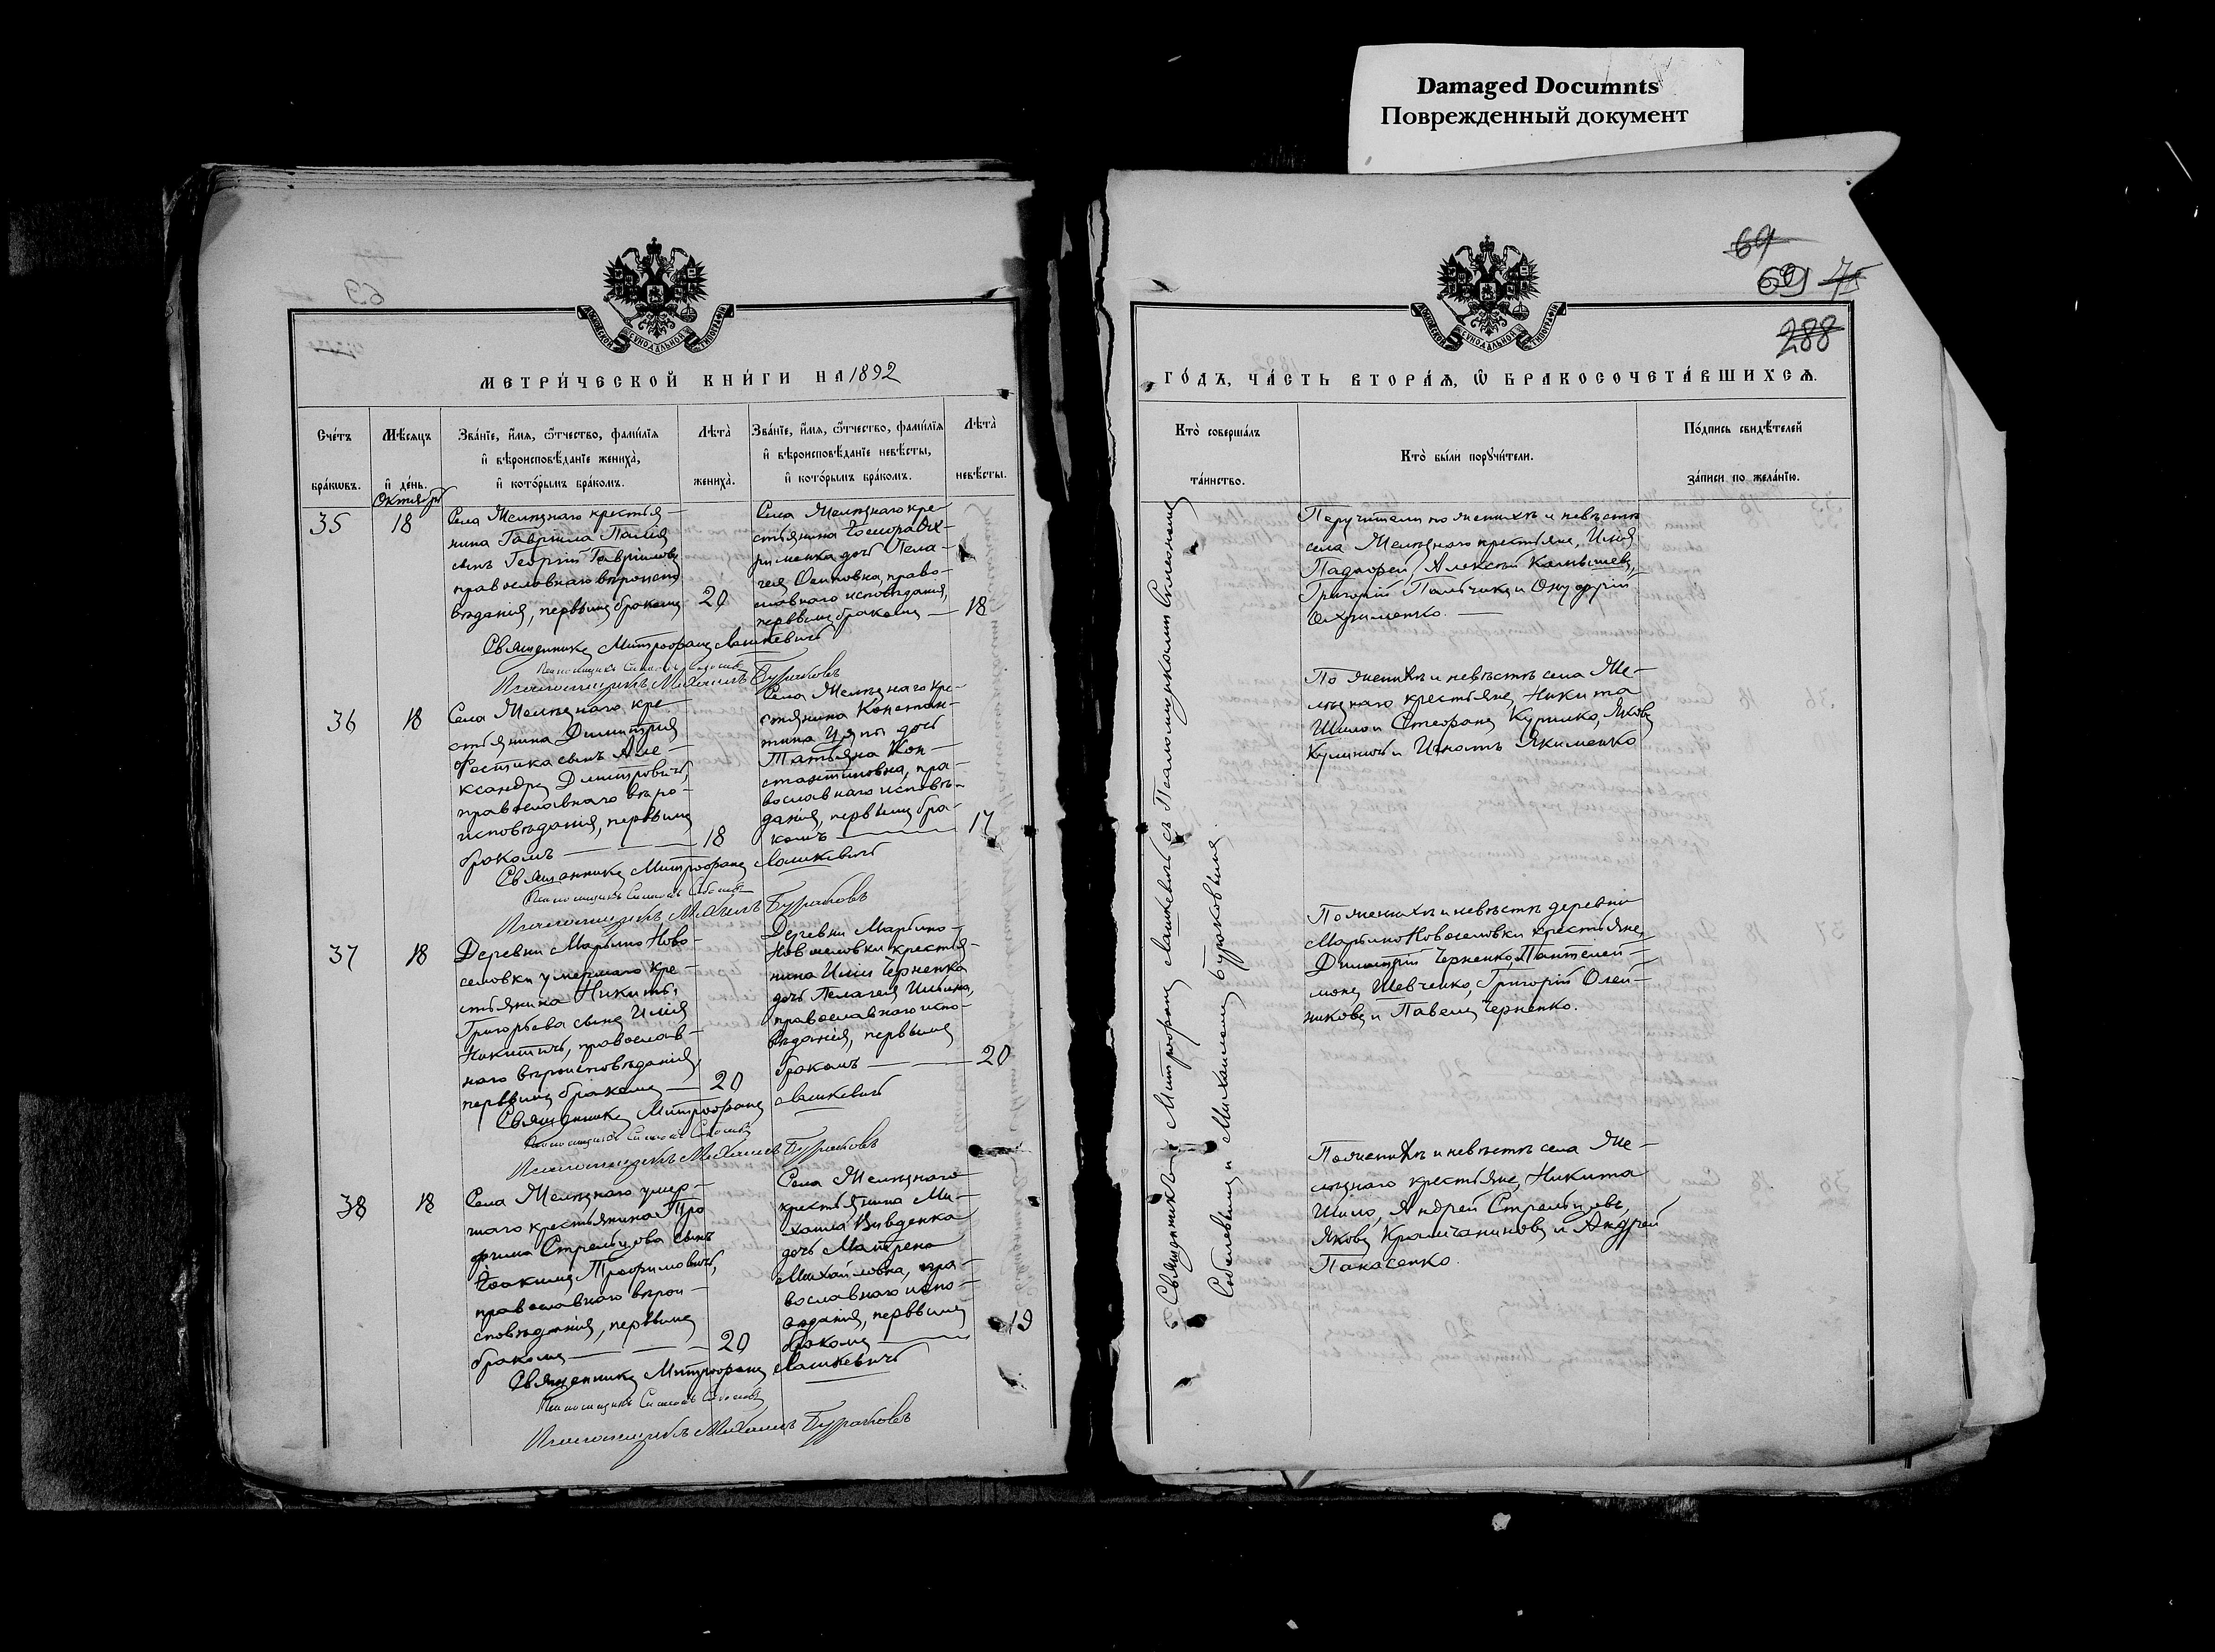 Damaged Documnts
Поврежденный документ
69
69 75
288
МЕТРИ́ЧЕСКОЙ КНИ́ГИ НА 1892
Сче́тъ бра́кωвъ.
Мѣ́сѧцъ и҆ де́нь.
Зва́нїе, и҆́мѧ, ѻ҆́тчество, фамѝлїѧ
и҆ вѣроисповѣ́данїе женихà,
и҆ кото́рымъ бра́комъ.
Лѣтà женихà.
Зва́нїе, и҆́мѧ, ѻ҆́тчество, фамѝлїѧ
и҆ вѣроисповѣ́данїе невѣ́сты,
и҆ кото́рымъ бра́комъ.
Лѣтà невѣ́сты.
Октябрь
35
18
крестья-
нина Гавріила
сынъ Георгій Гавріиловъ
православнаго вѣроиспо
вѣданія, первымъ бракомъ
20
кре
стьянина
дочь Пела-
гея право-
славнаго исповѣданія,
первымъ бракомъ
18
Священникъ Митрофанъ Лашкевичъ
Псаломщикъ Симеонъ
Псаломщикъ Михаилъ Бураковъ
36
18
кре-
стьянина Димитрія
сынъ Але-
ксандръ Димитровичъ,
православнаго вѣро-
исповѣданія, первымъ
бракомъ
18
кре-
стьянина Констан-
тина дочь
Татьяна Кон-
стантиновна, пра-
вославнаго исповѣ-
данія, первымъ бра-
комъ
17
Священникъ Митрофанъ Лашкевичъ
Псаломщикъ Симеонъ
Псаломщикъ Михаилъ Бураковъ
37
18
Деревни Марьино Ново-
селовки умершаго кре-
стьянина Никиты
Григорьева сынъ Илія
Никитичъ, православ-
наго вѣроисповѣданія,
первымъ бракомъ
20
Деревни Марьино-
Новоселовки крестья-
нина Иліи Черненка
дочь Пелагея Ильина,
православнаго испо-
вѣданія, первымъ
бракомъ
20
Священникъ Митрофанъ Лашкевичъ
Псаломщикъ Симеонъ
Псаломщикъ Михаилъ Бураковъ
38
18
умер-
шаго крестьянина Тро
фима Стрельцова сынъ
Іоакимъ Трофимовичъ,
православнаго вѣрои-
сповѣданія, первымъ
бракомъ
20
крестьянина Ми-
хаила Вивденка
дочь Матрена
Михайловна, пра-
вославнаго испо-
вѣданія, первымъ
бракомъ
19
Священникъ Митрофанъ Лашкевичъ
Псаломщикъ Симеонъ
Псаломщикъ Михаилъ Бураковъ
ГО́ДЪ, ЧА́СТЬ ВТОРА́Ѧ, Ѽ БРАКОСОЧЕТА́ВШИХСѦ.
Кто̀ соверша́лъ та́инство.
Кто̀ бы́ли порꙋчи́тели.
По́дпись свидѣ́телей за́писи по жела́нїю.
Священникъ Митрофанъ Лашкевичъ съ Псаломщиками Симеономъ
Соболевымъ и Михаиломъ Бураковымъ.
Поручители по женихѣ и невѣстѣ
села крестьяне, Илья
Алексѣй
Григорій и Онуфрій
Охрименко.
По женихѣ и невѣстѣ села Же-
крестьяне, Никита
Шило и Стефанъ Курилко, Яковъ
и Игнатъ Якименко
По женихѣ и невѣстѣ деревни
Марьино Новоселовки крестьяне,
Димитрій Черненко, Пантелей-
монъ Шевченко, Григорій Олей-
никовъ и Павелъ Черненко.
По женихѣ и невѣстѣ села Же-
крестьяне, Никита
Шило, Андрей Стрельцовъ,
Яковъ и Андрей
Панасенко.